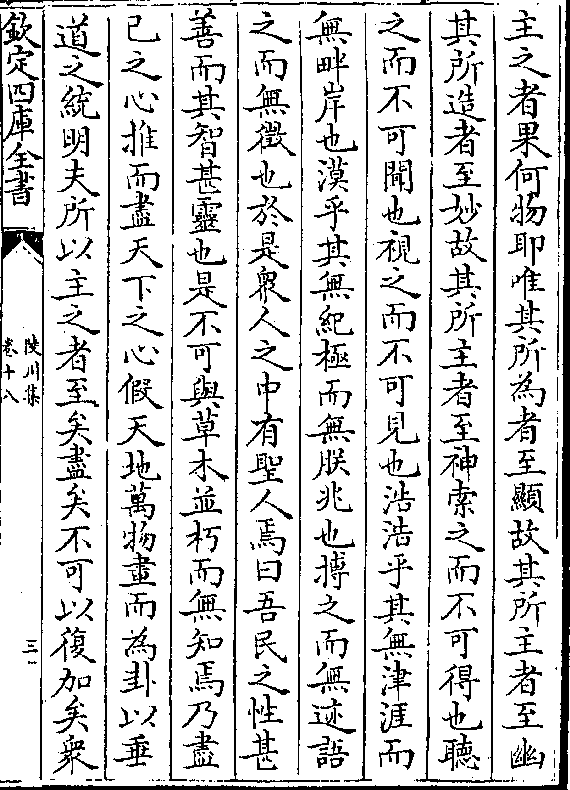 主之者果何物耶唯其所為者至顯故其所主者至幽
其所造者至妙故其所主者至神索之而不可得也聽
之而不可聞也視之而不可見也浩浩乎其無津涯而
無畔岸也漠乎其無紀極而無朕兆也摶之而無迹語
之而無徵也於是衆人之中有聖人焉曰吾民之性甚
善而其智甚靈也是不可與草木並朽而無知焉乃盡
己之心推而盡天下之心假天地萬物畫而為卦以垂
道之統明夫所以主之者至矣盡矣不可以復加矣衆
欽定四庫全書
陵川集
卷十八
三